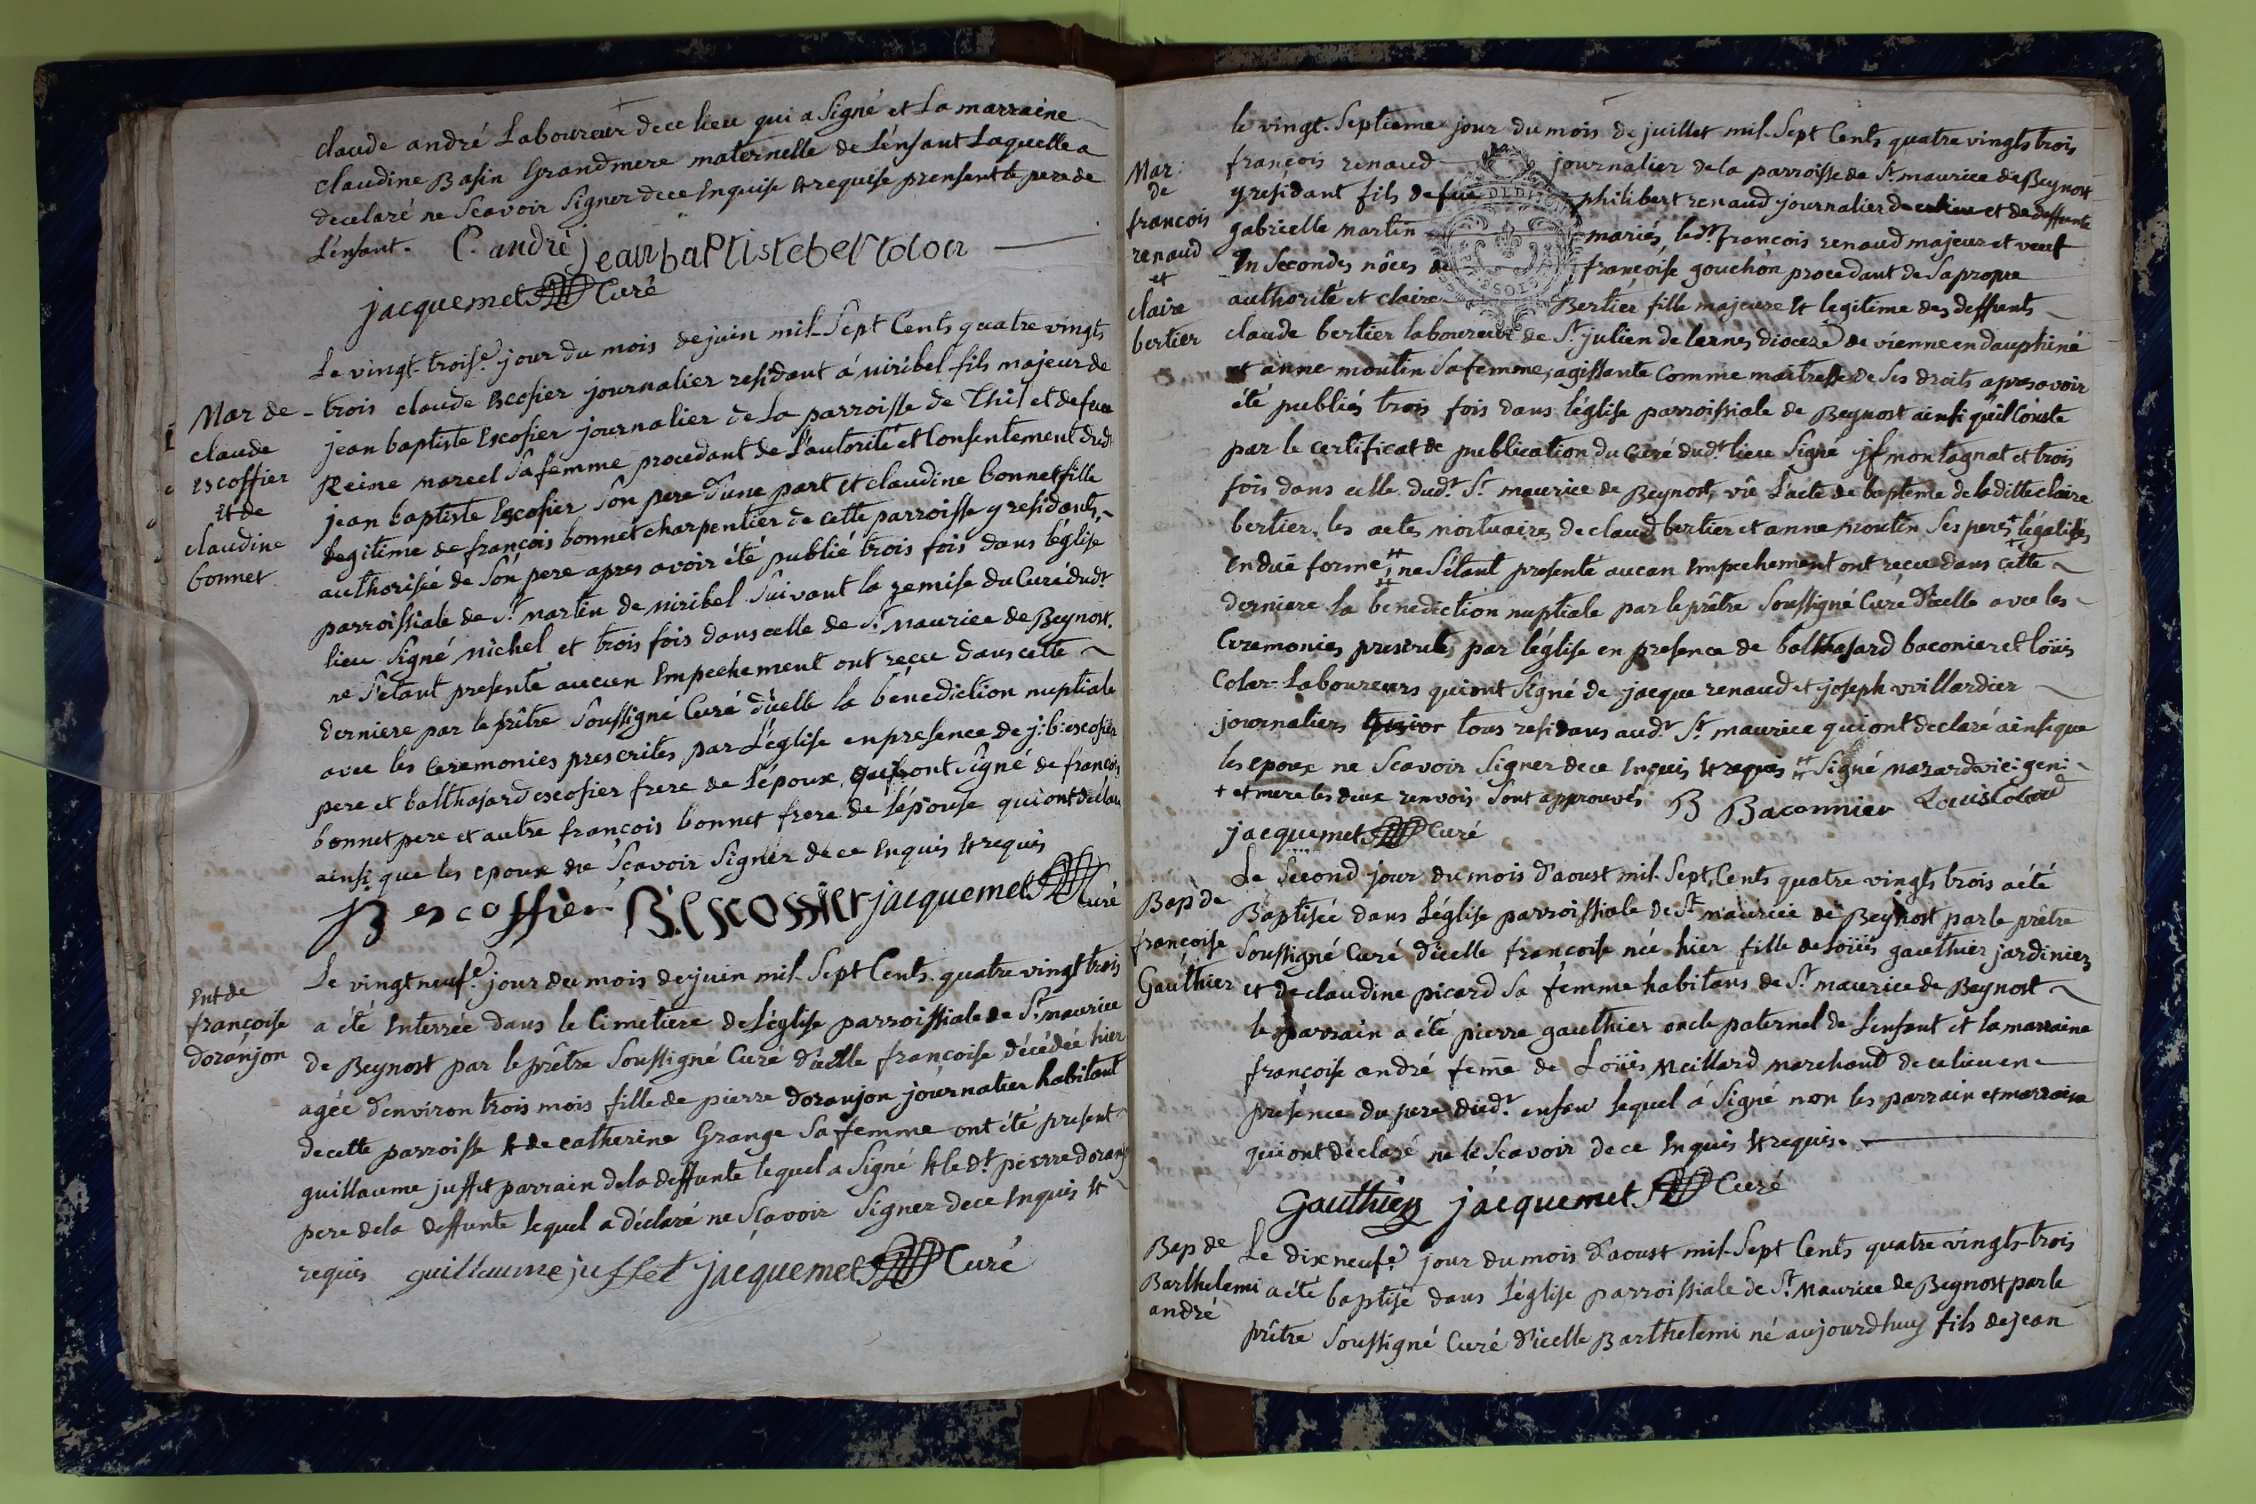 claude andré Laboureur de ce lieu qui a Signé et La marraine
claudine Basin Grandmere maternelle de L'enfant Laquelle a
decelaré ne Scavoir Signer de ce Enquise et requise prensent le pere de
L'enfant. C. andré jean baptiste bertolon
jacquemet Curé
Mar de
claude
Escoffier
et de
claudine
bonnet
Le vingt-troise. jour du mois de juin mil-Sept Cents quatre vingts
trois claude Escofier journalier residant á miribel fils majeur de
jean baptiste Escofier journalier de La parroisse de Thil et de fue
Reine marcel Sa femme procedant de L'autorité et Consentement dudt
jean baptiste Escofier Son pere d'une part et claudine bonnet fille
Legitime de françois bonnet charpentier de cette parroisse y residants,
authorisée de Son pere apres avoir été publié trois fois dans l'église
parroissiale de St martin de miribel Suivant la remise du Curé dudt
lieu Signé michel et trois fois dans celle de St Maurice de Beynost.
ne S'etant presenté aucun Empechement ont reçue dans cette
derniere par le prêtre Soussigné Curé d'icelle la bénédiction nuptiale
avec les Ceremonies prescrites par L'église en presence de j: b: escofier
pere et balthasard escofier frere de L'époux, qui ont Signé de françois
bonnet pere et autre françois bonnet frere de L'épouse qui ont declaré
ainsi que les epoux ne Scavoir Signer de ce Enquis et requis
JB escoffier B. Escossier jacquemet Curé
Ent de
françoise
doranjon
Le vingt neufe. jour du mois de juin mil-Sept Cents quatre vingt trois
a été Enterrée dans le Cimetiere de L'église parroissiale de St maurice
de Beynost par le prêtre Soussigné Curé d'icelle françoise décédée hier
agée d'environ trois mois fille de pierre doranjon journalier habitant
de cette parroisse et de catherine Grange Sa femme ont été present
guillaume juffet parrain de la deffunte lequel a Signé et le dt pierre doranj
pere de la deffunte lequel a déclaré ne Scavoir Signer de ce Enquis et
requis guillaume juffet jacquemet Curé
Mar
de
francois
renaud
et
claire
bertier
le vingt-Septieme jour du mois de juillet mil-Sept Cents quatre vingts trois
françois renaud journalier de la parroisse de St maurice de Beynost
y residant fils de feu philibert renaud journalier de ce lieu et de deffunte
gabrielle martin mariés, le dt françois renaud majeur et veuf
En Secondes nôces de françoise gouchon procedant de Sa propre
authorité et claire Bertier fille majeure et legitime des deffunts
claude bertier laboureur de St julien de lernes diocese de viénne en dauphiné
et anne moutin Sa femme, agissante Comme maitresse de Ses droits apres avoir
été publiés trois fois dans l'église parroissiale de Beynost ainsi qu'il Conste
par le certificat de publication du Curé dudt lieu Signé jf montagnat et trois
fois dans celle dudt St maurice de Beynost, vû L'acte de bapteme de la ditte claire
bertier, les actes mortuaires de claud bertier et anne moutin Ses peres + légalisés
en düe forme ++ ne S'étant presenté aucun Empechement ont reçue dans cette
derniere la benediction nuptiale par le prêtre Soussigné Curé d'icelle avec les
Ceremonies prescrites par l'église en presence de balthasard baconier et loüis
Colar Laboureurs qui ont Signé de jacque renaud et joseph villardier
journaliers tous residans audt St maurice qui ont declaré ainsi que
les epoux ne Scavoir Signer de ce Enquis et requis ++ Signé nazard vic: geni
+ et mere les deux renvois Sont approuvés B Baconnier Louis Colard
jacquemet Curé
Bap de
françoise
Gauthier
Le Second jour du mois d'aoust mil-Sept Cents quatre vingts trois a été
Baptisée dans L'église parroissiale de St maurice de Beynost par le prêtre
Soussigné Curé d'icelle françoise née hier fille de Loüis gauthier jardinier
et de claudine picard Sa femme habitans de St maurice de Beynost
le parrain a été pierre gauthier oncle paternel de L'enfant et la marraine
françoise andré feme de Loüis Meillard marchand de ce lieu en
présence du pere dudt enfant lequel á Signé non les parrain et marraine
qui ont déclaré ne le Scavoir de ce Enquis et requis.
Gauthier jacquemet Curé
Bap de
Barthelemi
andré
Le dix neufe. jour du mois d'aoust mil-Sept Cents quatre vingts-trois
a été baptisé dans L'église parroissiale de St Maurice de Beynost par le
prêtre Soussigné Curé d'icelle Barthelemi né aujourdhuy fils de jean